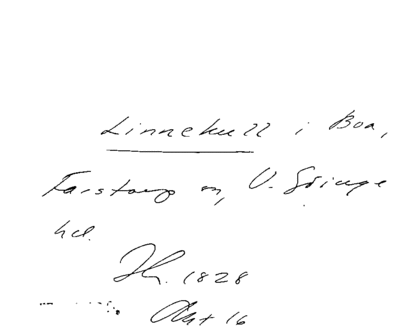 Linnekull i Boa,
Farstorp sn, V. Göinge
hd.
Jh. 1828
Akt 16